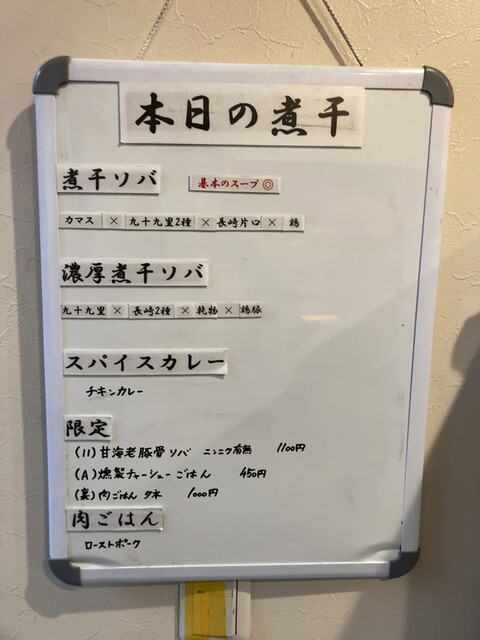 本日の煮干
煮干ソバ 基本のスープ◎
カマス × 九十九里2種 × 長崎片口 × 鶏
濃厚煮干ソバ
九十九里 × 長崎2種 × 乾物 × 鶏豚
スパイスカレー
チキンカレー
限定
(11) 甘海老豚骨ソバ ニンニク有無 1100円
(A) 燻製チャーシューごはん 450円
(裏) 肉ごはん タネ 1000円
肉ごはん
ローストポーク